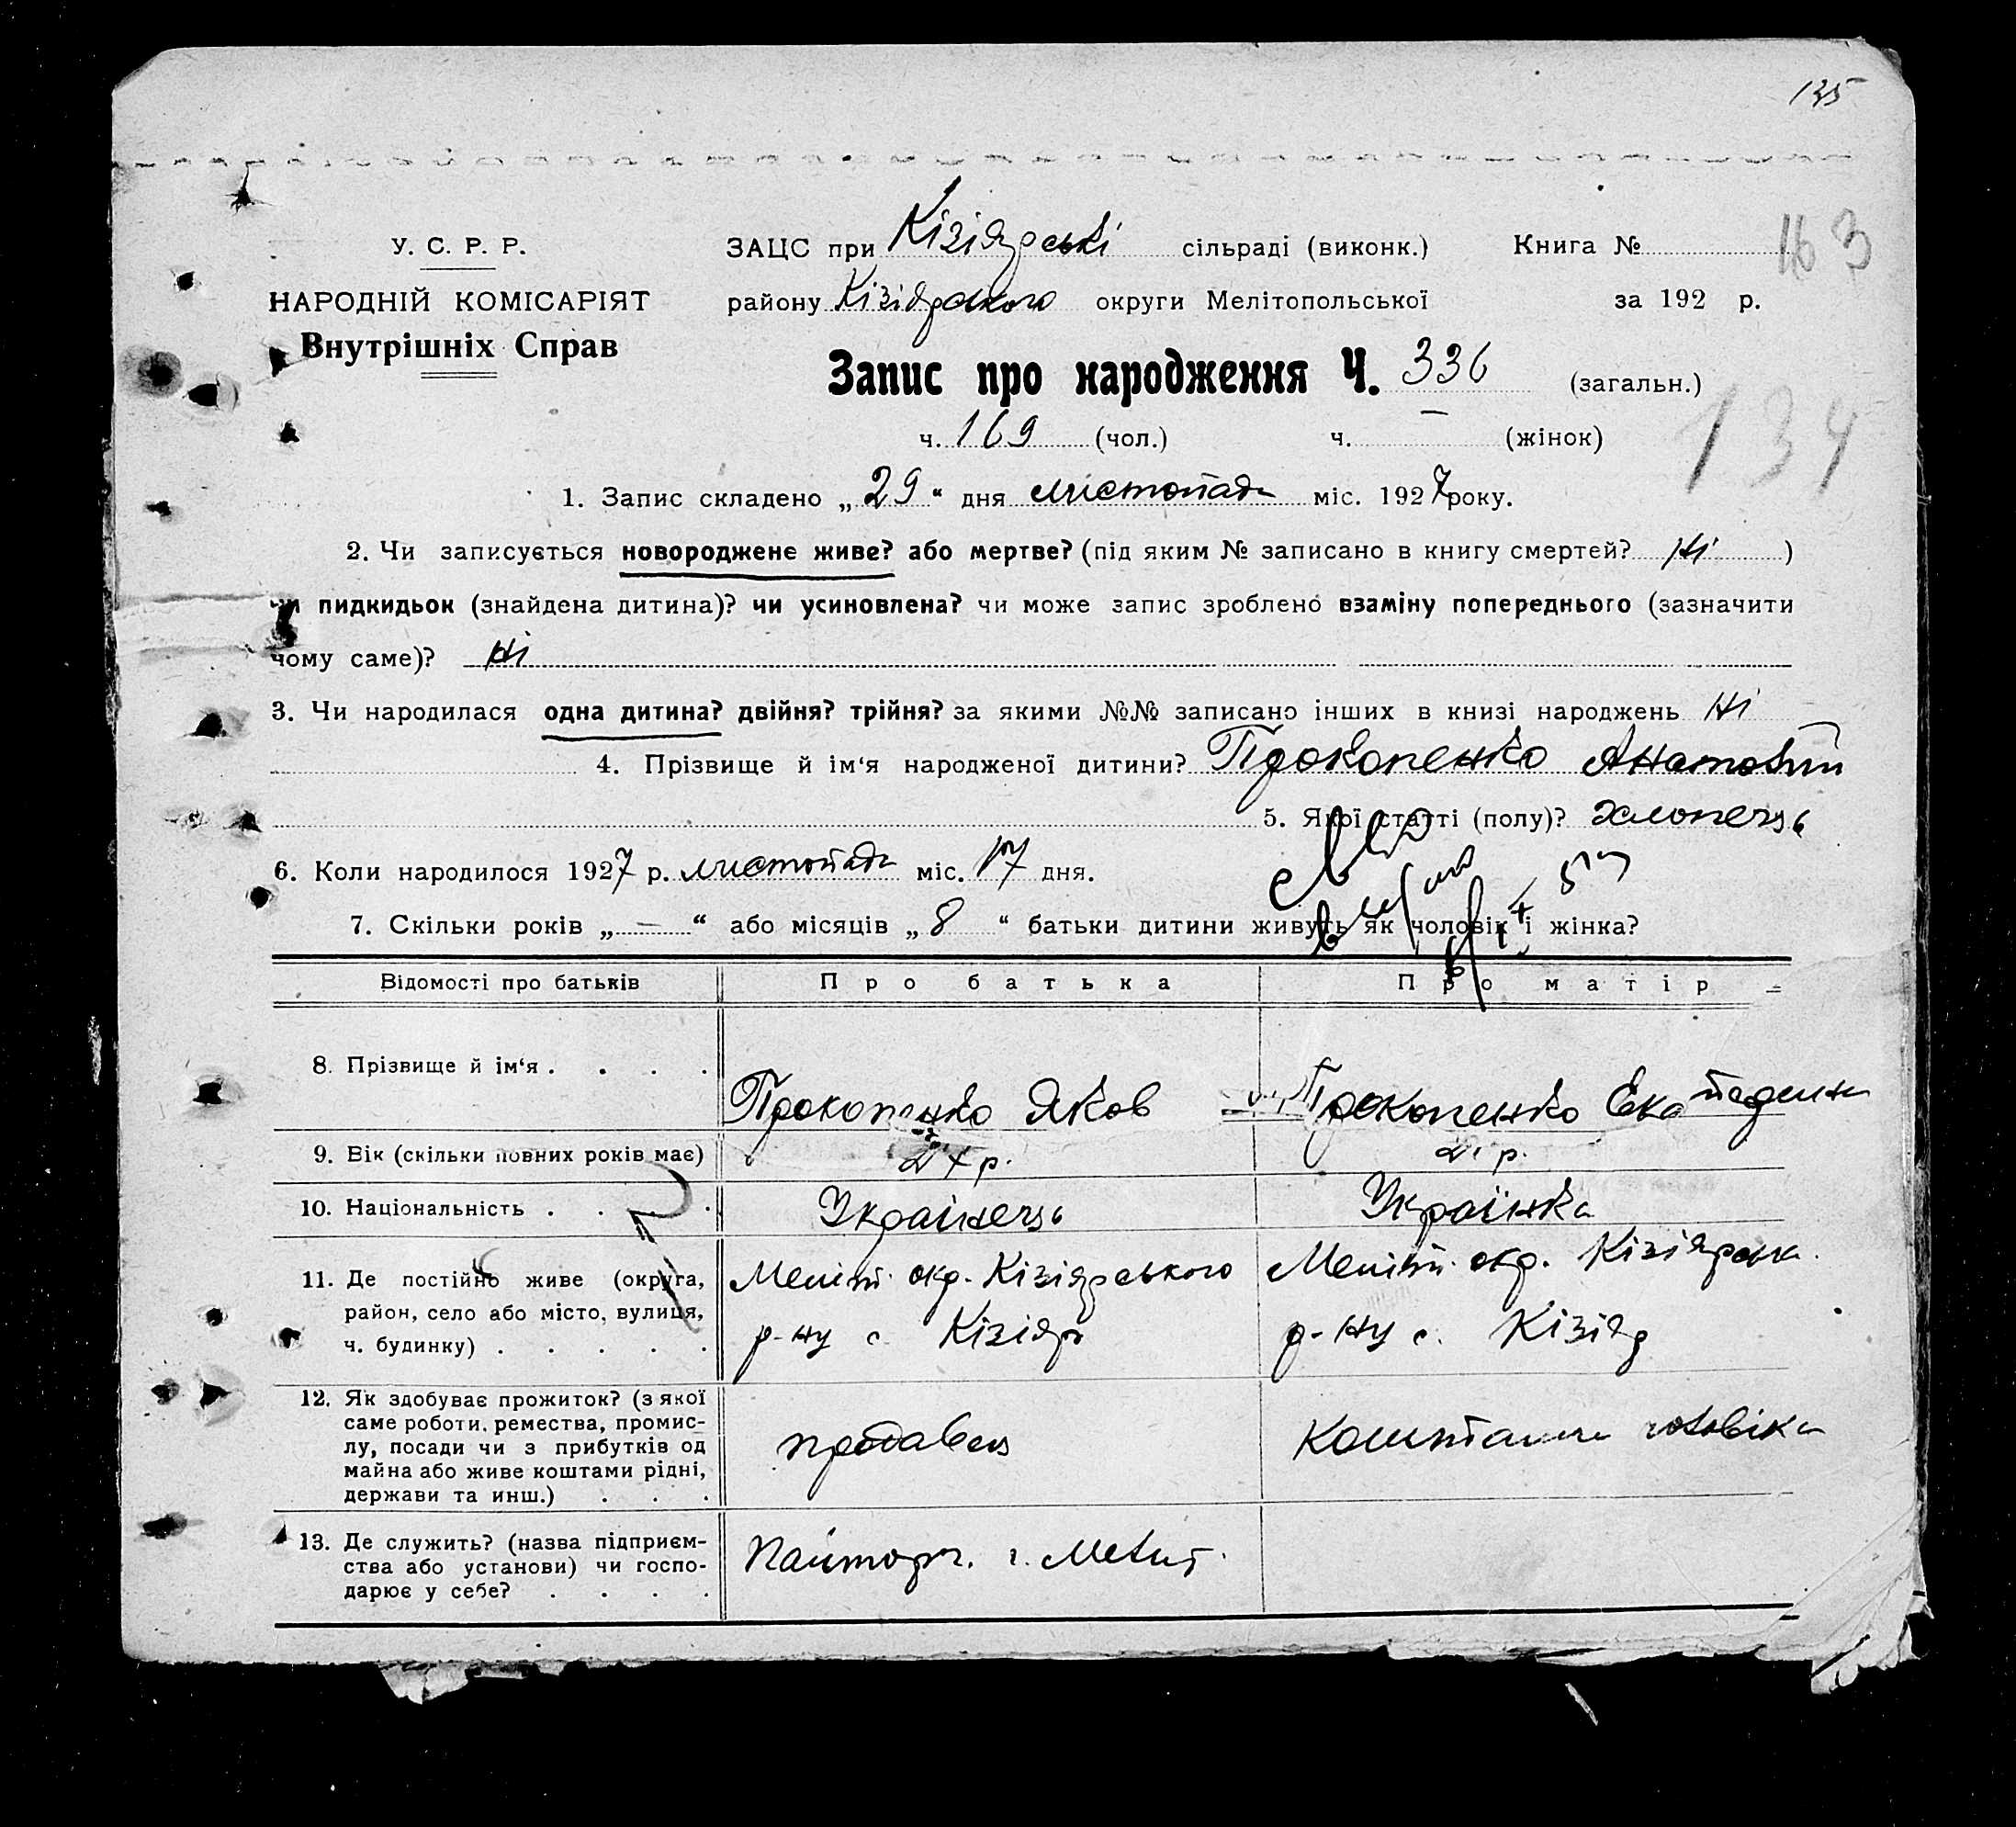 135
У. С. Р. Р.
НАРОДНІЙ КОМІСАРІЯТ
Внутрішніх Справ
ЗАЦС при Кізіярські сільраді (виконк.) Книга №
163
району Кізіярського округи Мелітопольської за 192 р.
Запис про народження Ч. 336 (загальн.)
ч. 169 (чол.) ч. — (жінок)
134
1. Запис складено „29“ дня листопада міс. 1927 року.
2. Чи записується новороджене живе? або мертве? (під яким № записано в книгу смертей? Ні)
чи пидкидьок (знайдена дитина)? чи усиновлена? чи може запис зроблено взаміну попереднього (зазначити
чому саме)? Ні
3. Чи народилася одна дитина? двійня? трійня? за якими №№ записано інших в книзі народжень Ні
4. Прізвище й ім‘я народженої дитини? Прокопенко Анатолій
5. Якої статті (полу)? хлопець
6. Коли народилося 1927 р. листопада міс. 17 дня.
7. Скільки років „—“ або місяців „8“ батьки дитини живуть як чоловік і жінка?
Відомості про батьків Про батька Про матір
8. Прізвище й ім‘я . . . . Прокопенко Яков Прокопенко Екатерина
9. Вік (скільки повних років має) р. р.
10. Національність . . . . Українець Українка
11. Де постійно живе (округа, Меліт. окр. Кізіярського Меліт. окр. Кізіярська
район, село або місто, вулиця, р-ну с. Кізіяр р-ну с. Кізіяр
ч. будинку) . . . . .
12. Як здобуває прожиток? (з якої
саме роботи, ремества, промис-
лу, посади чи з прибутків од продавец коштами чоловіка
майна або живе коштами рідні,
держави та инш.) . . .
13. Де служить? (назва підприєм-
ства або установи) чи госпо- Пайторг. г. Меліт.
дарює у себе? . . . .